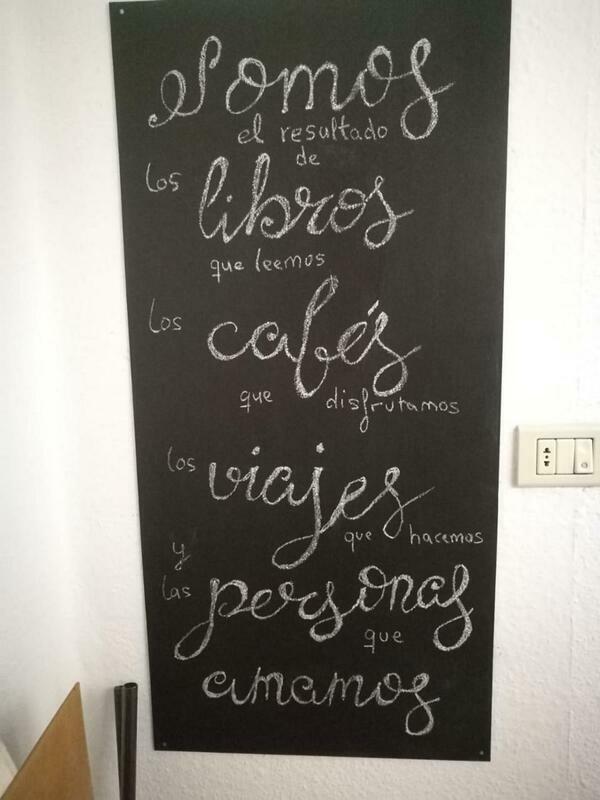 Somos
el resultado
de
los libros
que leemos
los cafés
que disfrutamos
los viajes
que hacemos
y
las personas
que
amamos